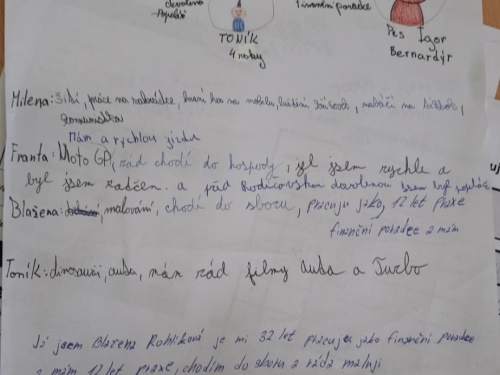 dovolená
finanční poradce
popelář
TONÍK
4 roky
Pes Igor
Bernardýr
Milena: šití, práce na zahrádce, hraní her na mobilu, luštění,
komunistka
Mám a rychlou jízdu
Franta: Moto GP, rád chodí do hospody, jel jsem rychle a
byl jsem zadržen. a před Rodičovskou dovolenou jsem byl popelář
Blažena: malování, chodí do sboru, pracuju jako, 12 let praxe
finanční poradce a mám
Toník: dinosauři, auta, mán rád filmy Auta a Turbo
Já jsem Blažena Rohlíková je mi 32 let pracuju jako finanční poradce
a mám 12 let praxe, chodím do sboru a ráda maluji